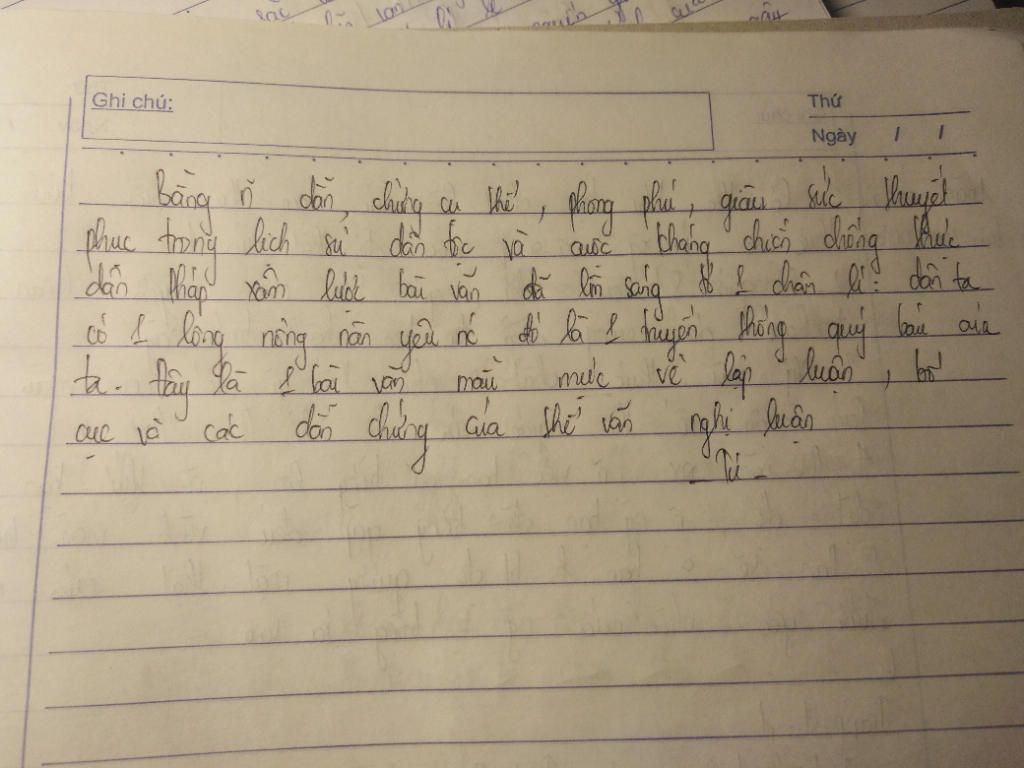 Ghi chú:
Thứ
Ngày / /
Bằng n~ dẫn chứng cụ thể, phong phú, giàu sức thuyết
phục trong lịch sử dân tộc và cuộc kháng chiến chống thực
dân Pháp xâm lược bài văn đã làm sáng tỏ 1 chân lí: dân ta
có 1 lòng nồng nàn yêu nc đó là 1 truyền thống quý báu của
ta. Đây là 1 bài văn mẫu mực về lập luận, bố
cục và các dẫn chứng của thể văn nghị luận
- Tú -